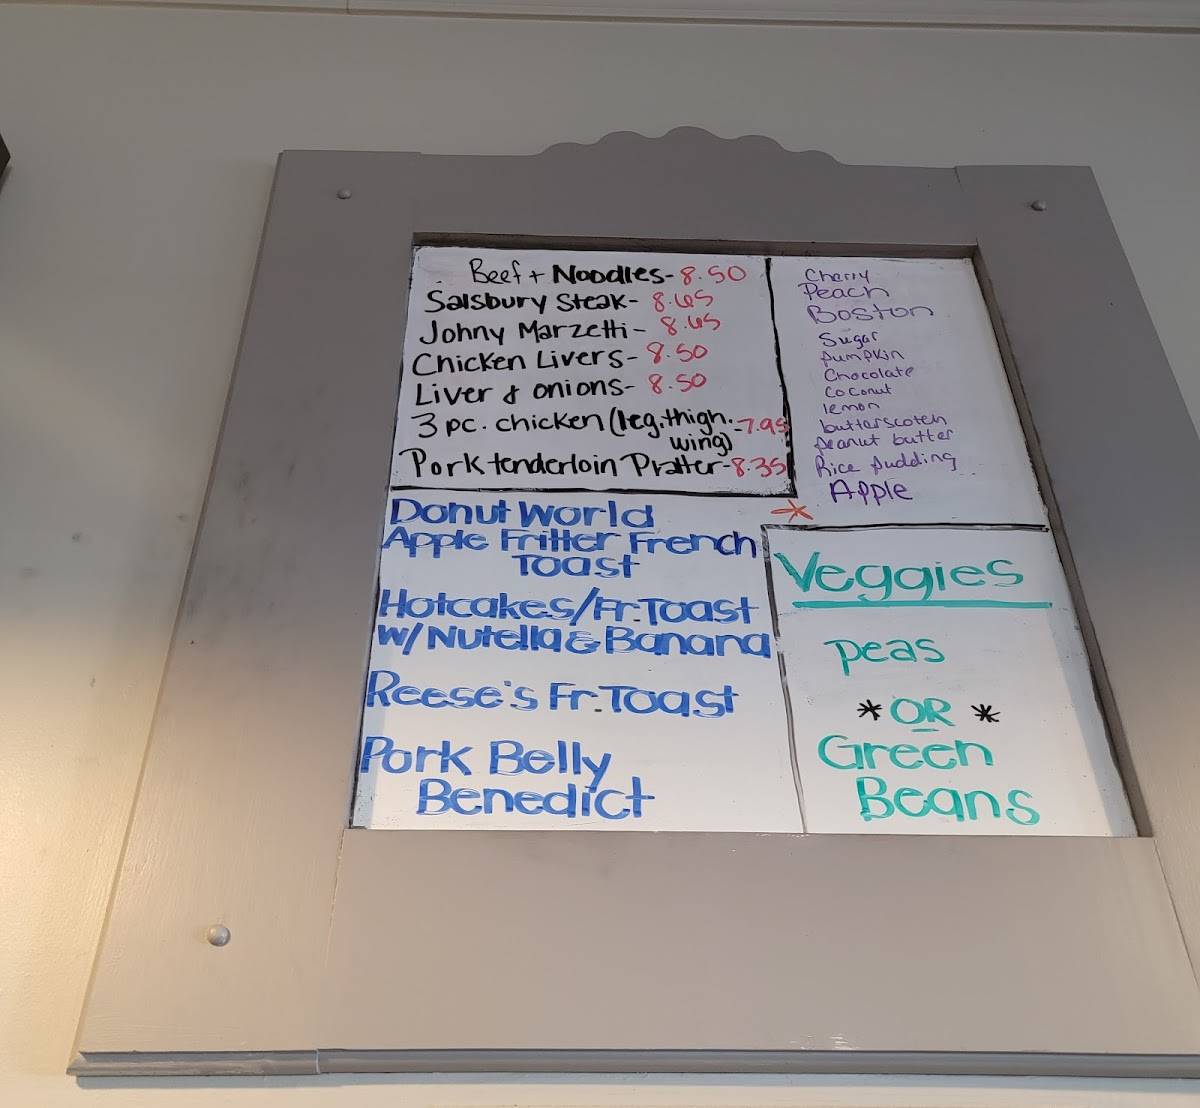 Beef + Noodles - 8.50
Salsbury Steak - 8.65
Johny Marzetti - 8.65
Chicken Livers - 8.50
Liver & onions - 8.50
3 pc. chicken (leg, thigh, - 7.95
wing)
Pork tenderloin Platter - 8.35
Cherry
Peach
Boston
Sugar
Pumpkin
Chocolate
Coconut
lemon
butterscotch
peanut butter
Rice pudding
Apple
Donut World
Apple Fritter French
Toast
Hotcakes/Fr. Toast
w/ Nutella & Banana
Reese's Fr. Toast
Pork Belly
Benedict
Veggies
peas
* OR *
Green
Beans